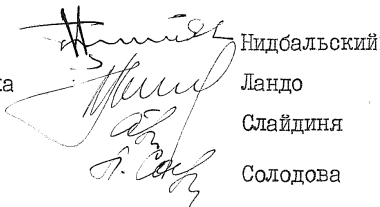 Нидбальский
ка Ландо
Слайдиня
Солодова